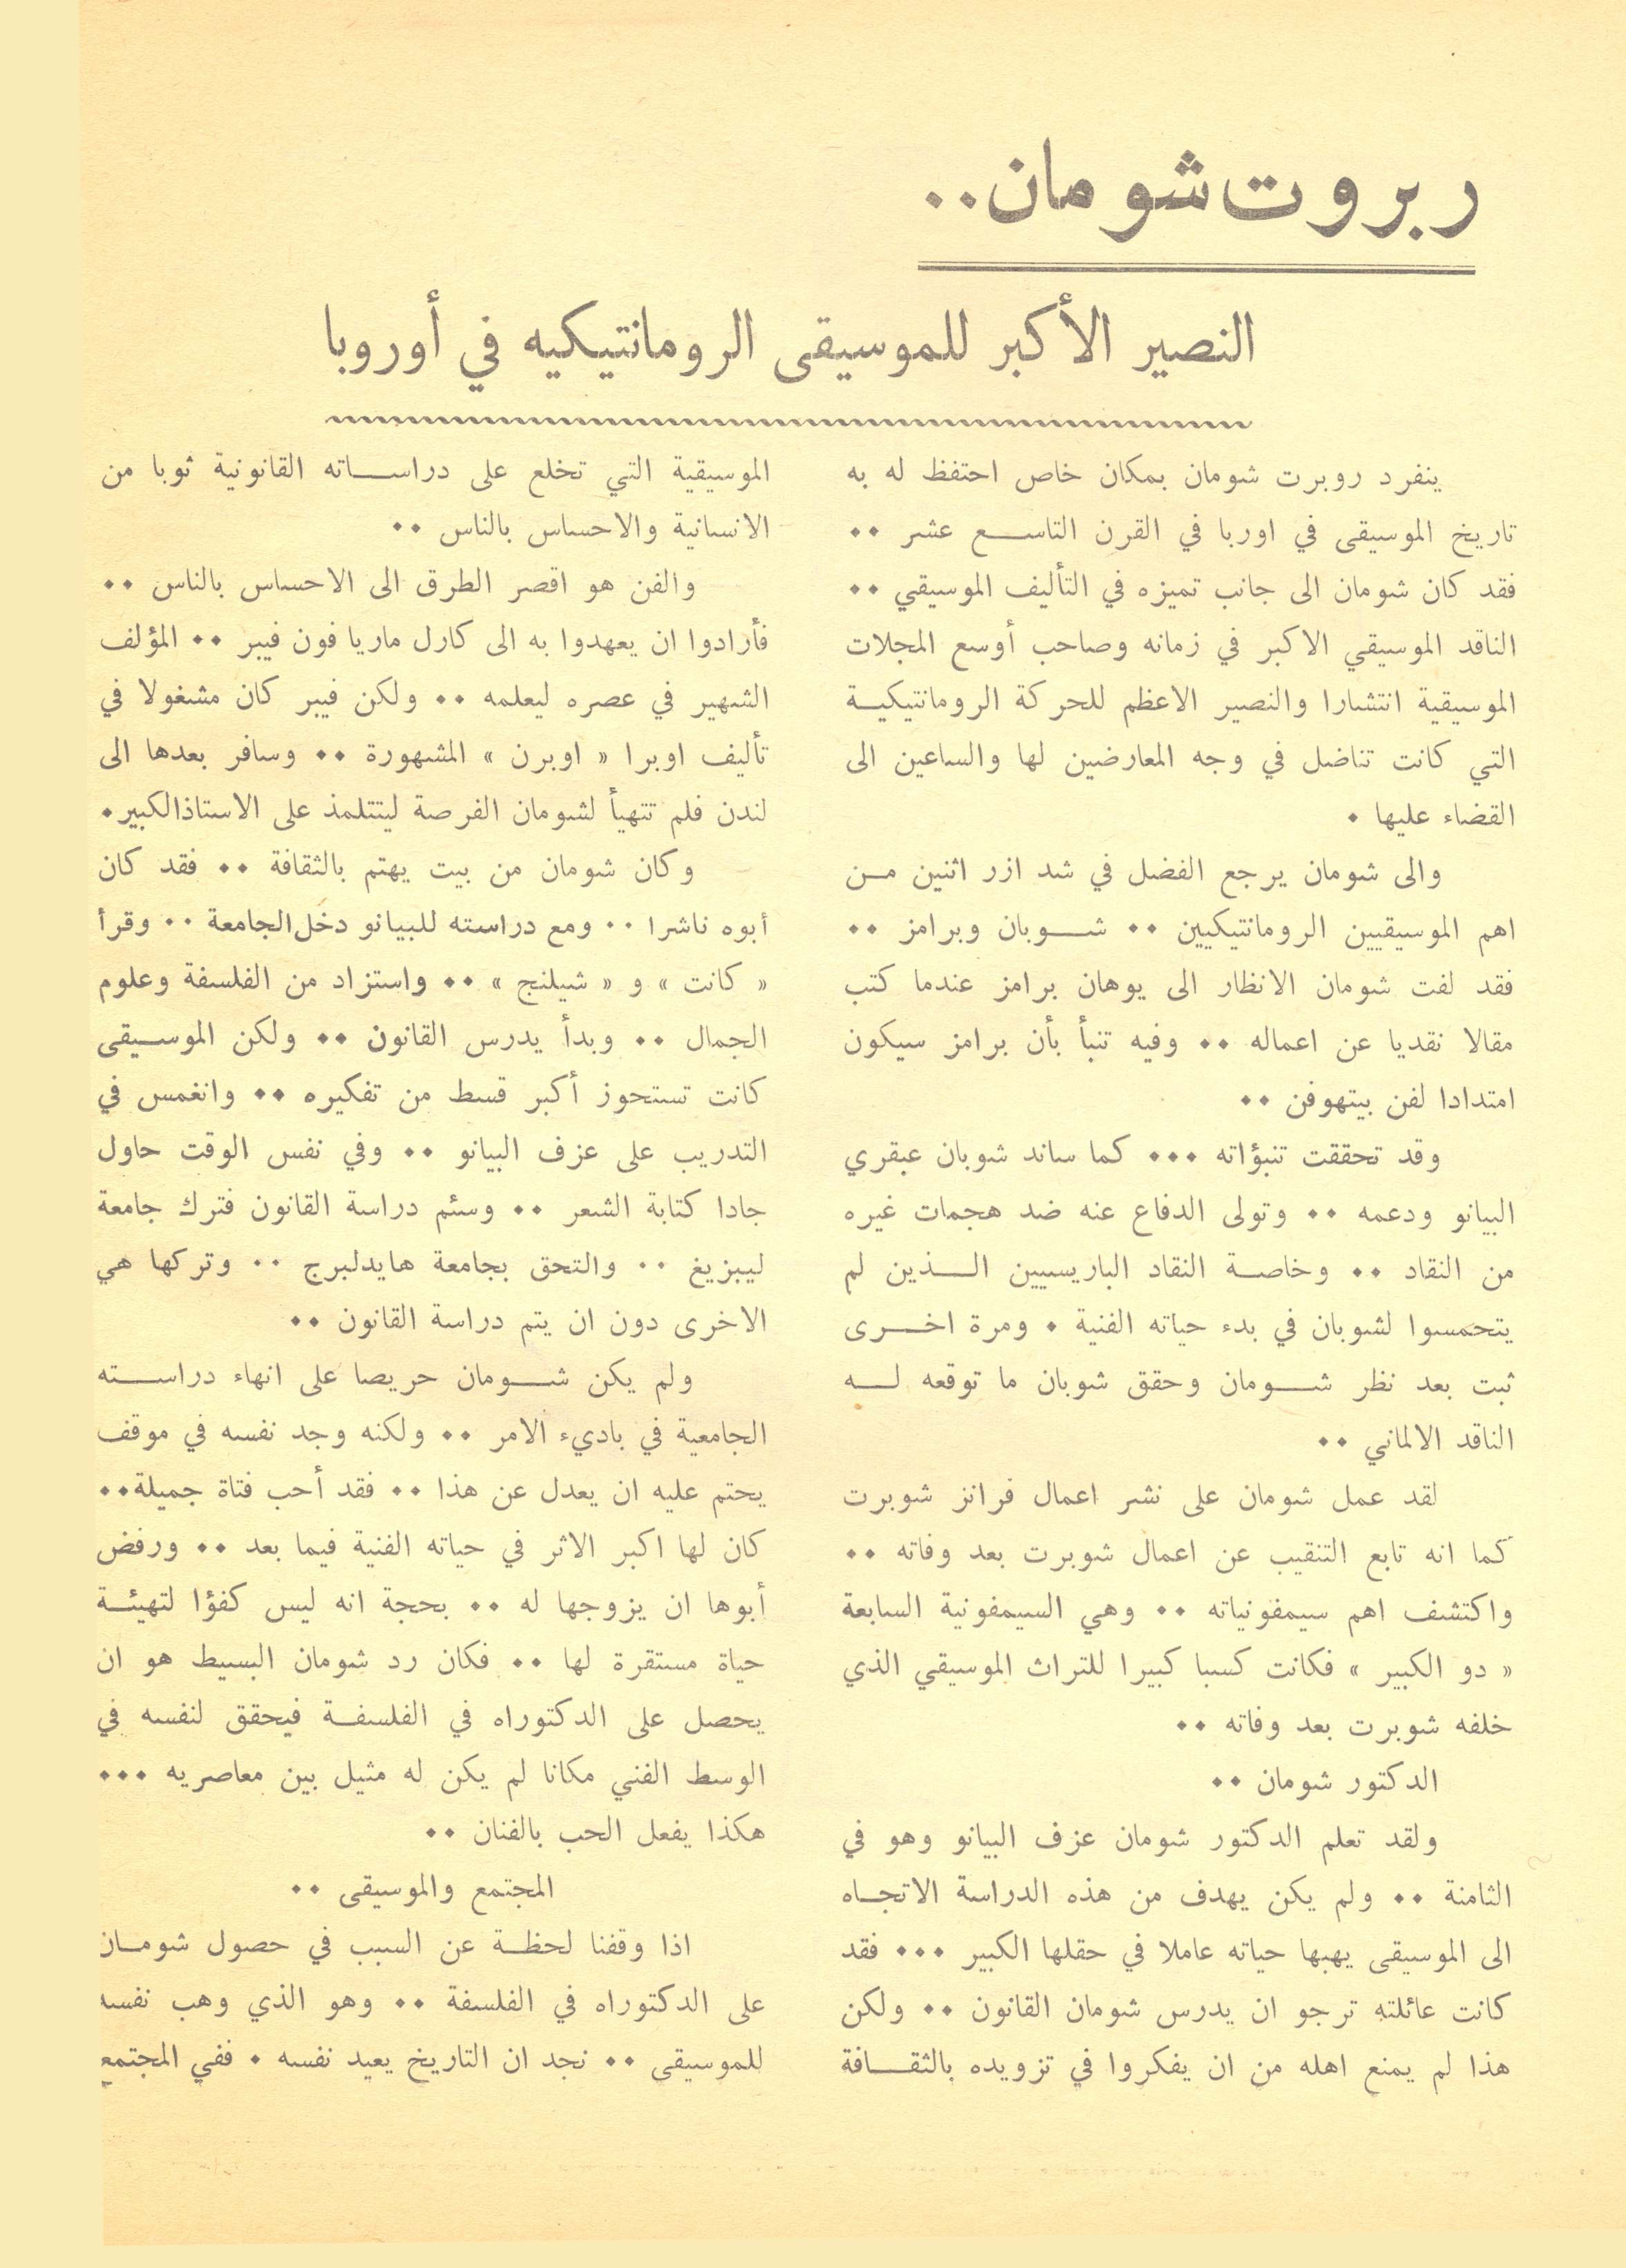 ربروت شومان..
النصير الأكبر للموسيقى الرومانتيكيه في أوروبا
ينفرد روبرت شومان بمكان خاص احتفظ له به
تاريخ الموسيقى في اوربا في القرن التاسع عشر ..
فقد كان شومان الى جانب تميزه في التأليف الموسيقي ..
الناقد الموسيقي الاكبر في زمانه وصاحب أوسع المجلات
الموسيقية انتشارا والنصير الاعظم للحركة الرومانتيكية
التي كانت تناضل في وجه المعارضين لها والساعين الى
القضاء عليها .
والى شومان يرجع الفضل في شد ازر اثنين من
اهم الموسيقيين الرومانتيكيين .. شوبان وبرامز ..
فقد لفت شومان الانظار الى يوهان برامز عندما كتب
مقالا نقديا عن اعماله .. وفيه تنبأ بأن برامز سيكون
امتدادا لفن بيتهوفن ..
وقد تحققت تنبؤاته ... كما ساند شوبان عبقري
البيانو ودعمه .. وتولى الدفاع عنه ضد هجمات غيره
من النقاد .. وخاصة النقاد الباريسيين الذين لم
يتحمسوا لشوبان في بدء حياته الفنية . ومرة اخرى
ثبت بعد نظر شومان وحقق شوبان ما توقعه له
الناقد الالماني ..
لقد عمل شومان على نشر اعمال فرانز شوبرت
كما انه تابع التنقيب عن اعمال شوبرت بعد وفاته ..
واكتشف اهم سيمفونياته .. وهي السيمفونية السابعة
« دو الكبير » فكانت كسبا كبيرا للتراث الموسيقي الذي
خلفه شوبرت بعد وفاته ..
الدكتور شومان ..
ولقد تعلم الدكتور شومان عزف البيانو وهو في
الثامنة .. ولم يكن يهدف من هذه الدراسة الاتجاه
الى الموسيقى يهبها حياته عاملا في حقلها الكبير ... فقد
كانت عائلته ترجو ان يدرس شومان القانون .. ولكن
هذا لم يمنع اهله من ان يفكروا في تزويده بالثقافة
الموسيقية التي تخلع على دراساته القانونية ثوبا من
الانسانية والاحساس بالناس ..
والفن هو اقصر الطرق الى الاحساس بالناس ..
فأرادوا ان يعهدوا به الى كارل ماريا فون فيبر .. المؤلف
الشهير في عصره ليعلمه .. ولكن فيبر كان مشغولا في
تأليف اوبرا « اوبرن » المشهورة .. وسافر بعدها الى
لندن فلم تتهيأ لشومان الفرصة ليتتلمذ على الاستاذالكبير.
وكان شومان من بيت يهتم بالثقافة .. فقد كان
أبوه ناشرا .. ومع دراسته للبيانو دخل الجامعة .. وقرأ
« كانت » و « شيلنج » .. واستزاد من الفلسفة وعلوم
الجمال .. وبدأ يدرس القانون .. ولكن الموسيقى
كانت تستحوز أكبر قسط من تفكيره .. وانغمس في
التدريب على عزف البيانو .. وفي نفس الوقت حاول
جادا كتابة الشعر .. وسئم دراسة القانون فترك جامعة
ليبزيغ .. والتحق بجامعة هايدلبرج .. وتركها هي
الاخرى دون ان يتم دراسة القانون ..
ولم يكن شومان حريصا على انهاء دراسته
الجامعية في باديء الامر .. ولكنه وجد نفسه في موقف
يحتم عليه ان يعدل عن هذا .. فقد أحب فتاة جميلة..
كان لها اكبر الاثر في حياته الفنية فيما بعد .. ورفض
أبوها ان يزوجها له .. بحجة انه ليس كفؤا لتهيئة
حياة مستقرة لها .. فكان رد شومان البسيط هو ان
يحصل على الدكتوراه في الفلسفة فيحقق لنفسه في
الوسط الفني مكانا لم يكن له مثيل بين معاصريه ...
هكذا يفعل الحب بالفنان ..
المجتمع والموسيقى ..
اذا وقفنا لحظة عن السبب في حصول شومان
على الدكتوراه في الفلسفة .. وهو الذي وهب نفسه
للموسيقى .. نجد ان التاريخ يعيد نفسه . ففي المجتمع